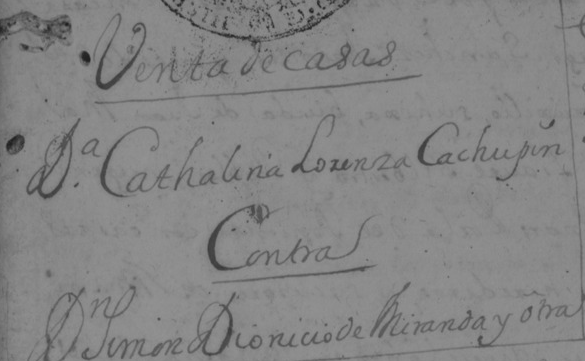 Venta de casas
D.ª Cathalina Lorenza Cachupin
Contra
Dn Simon Dionicio de Miranda y otra